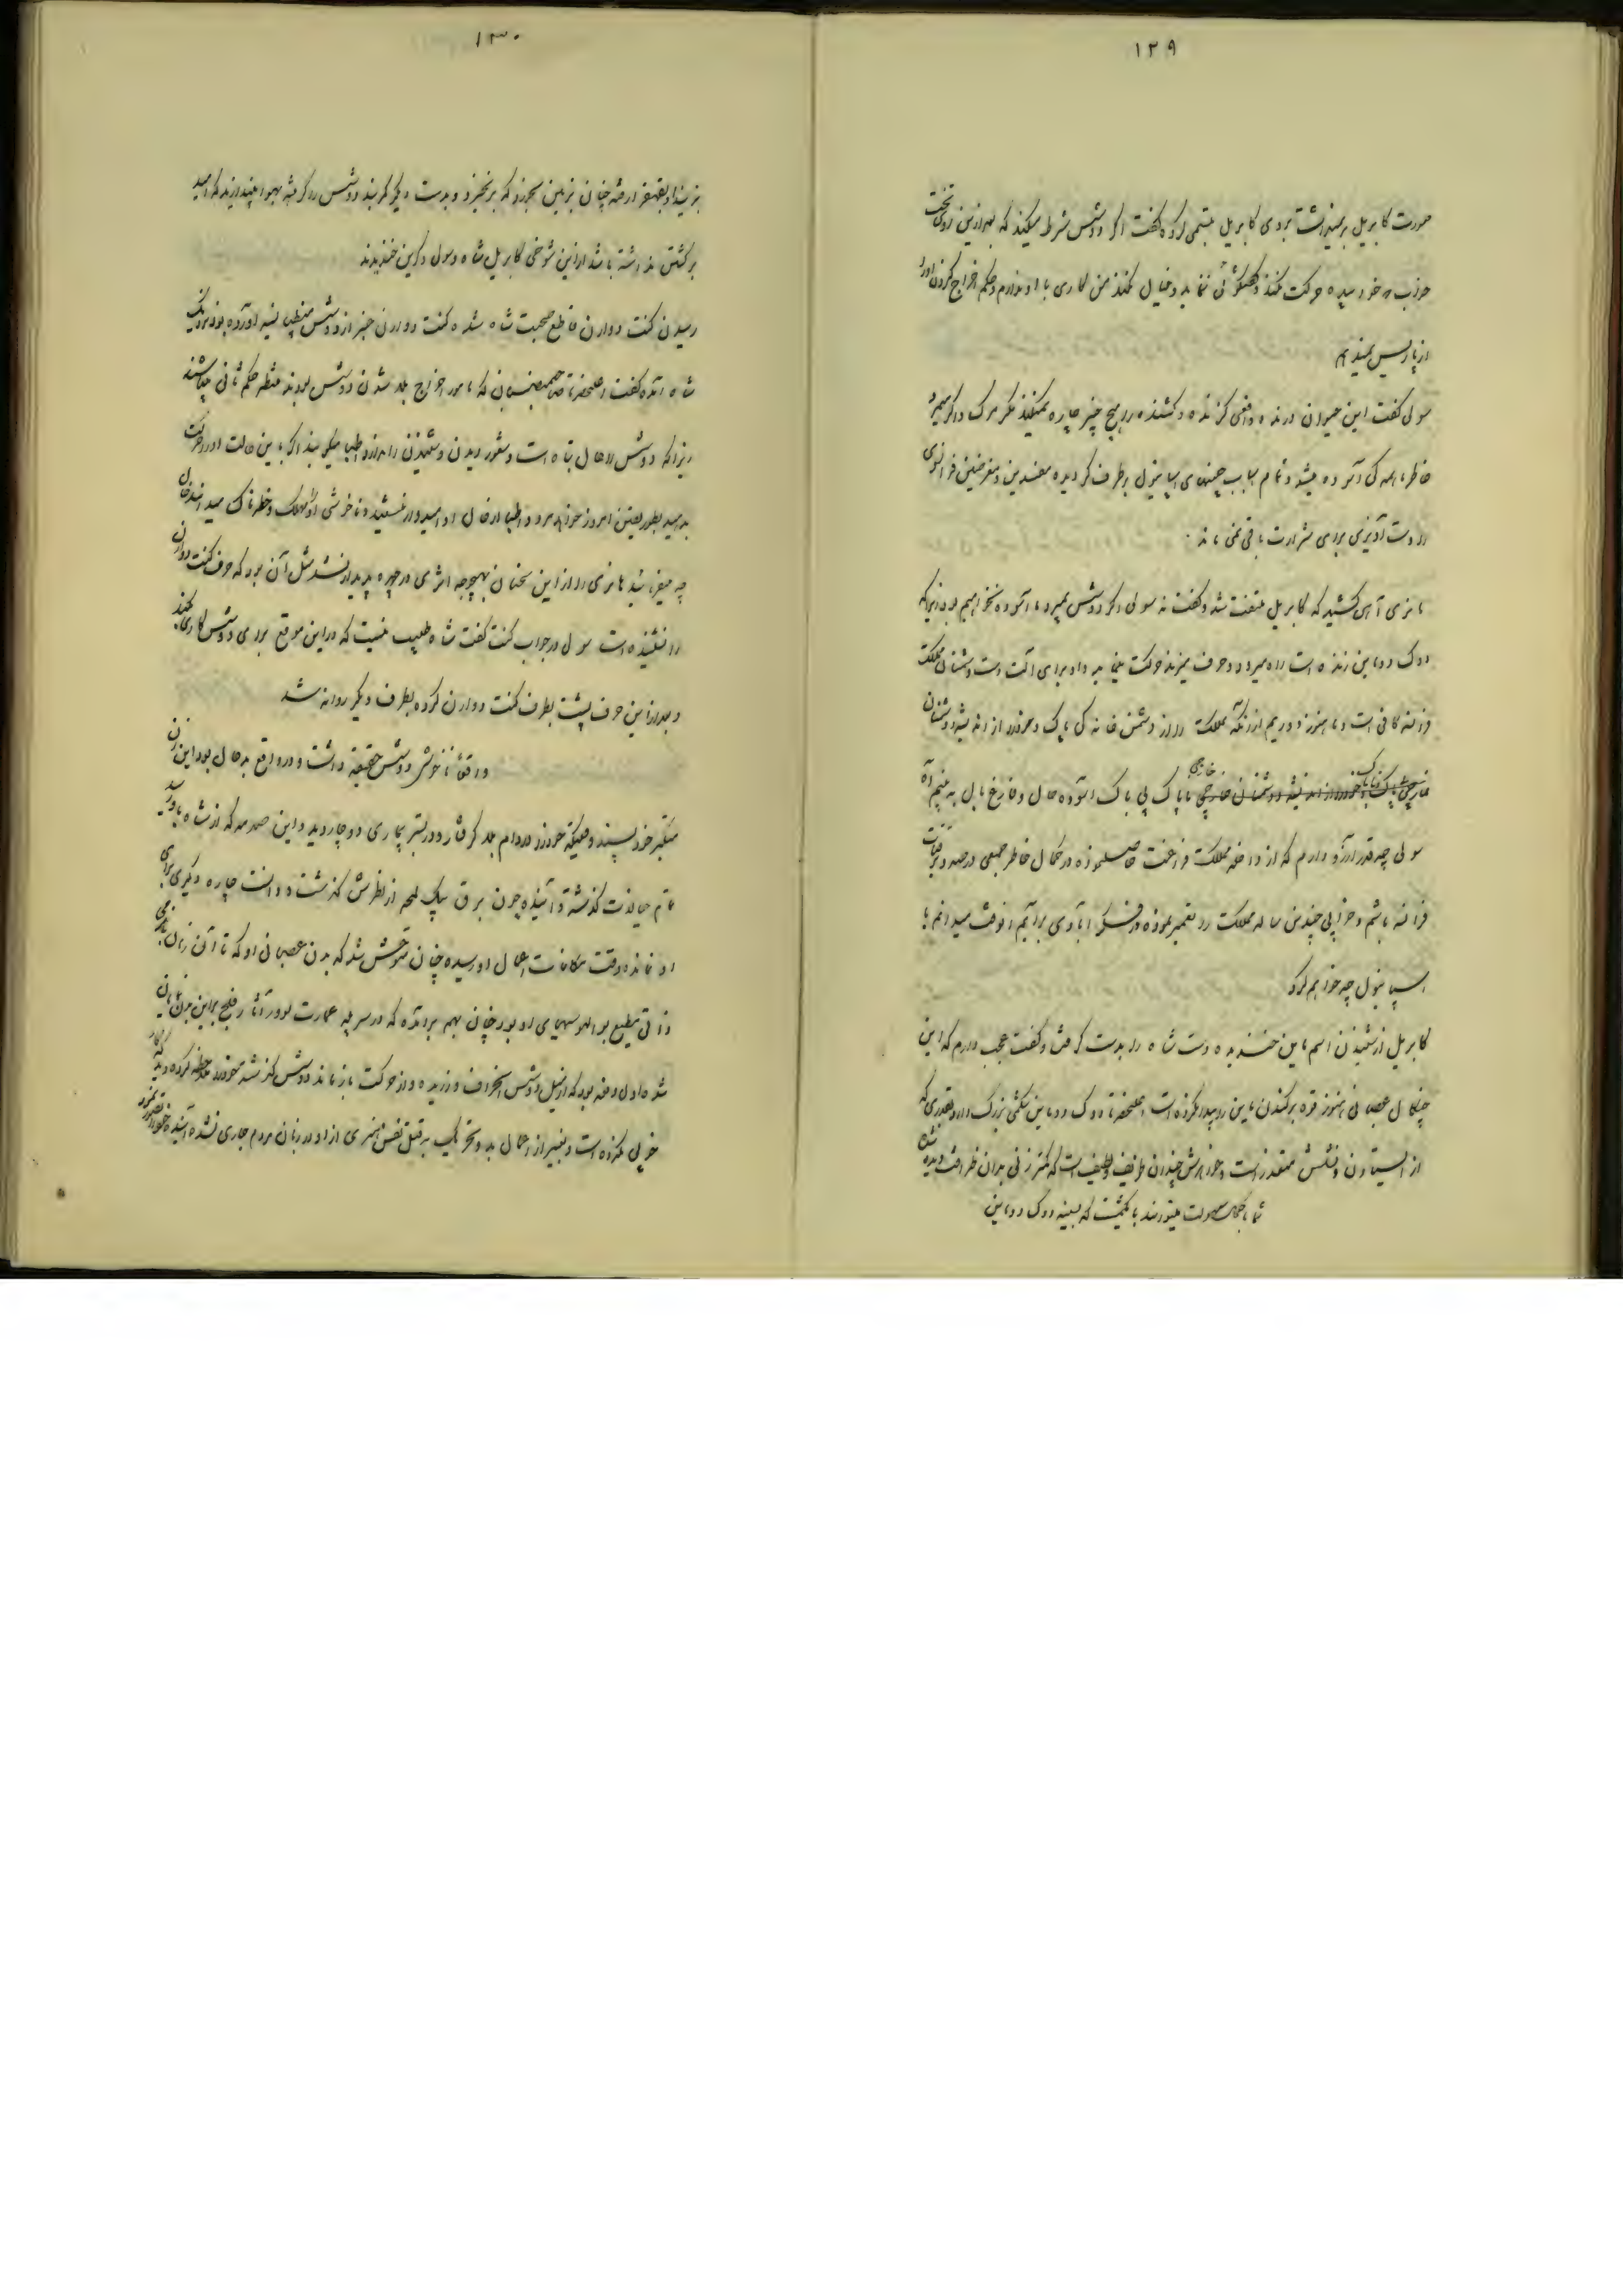 ۱۲۹
صورت کابریل برنمیداشت بروی کابریل تبسمی کرده گفت اگر دوشس شرط میکند که بعد از این روی تخت
خواب خوابیده حرکت نکند و گفتگوئی ننماید و خیال نکند من کاری با او ندارم و حکم اخراج کردن او را
از پاریس نمیدهم
سولی گفت این حیوان درنده واقعی گزنده و کشنده را هیچ چیز چاره نمیکند مگر مرگ و اگر بمیرد
خاطر همه کی آسوده میشود و تمام اسباب چینی های اسپانیول برطرف گردیده مفسدین و مغرضین فرانسوی
را دست آویزی برای شرارت باقی نمی ماند .
هانری آهی کشید که کابریل ملتفت شد و گفت نه سولی اگر دوشس بمیرد ما آسوده نخواهیم بود زیرا که
دوک دوماین زنده است راه میرود و حرف میزند حرکت مینماید و او برای آلت دست دشمنان مملکت
فرانسه کافی است و ما هنوز دوریم از آنکه مملکت را از دشمن خانه کی پاک و خود را از اندیشه دشمنان
خارجی ناپاک بی باک آسوده حال و فارغ بال به بینیم آه
سولی چه قدر آرزو دارم که از داخله مملکت فراغت حاصل نموده در کمال خاطر جمعی در صدد ترقیات
فرانسه باشم و خرابی چندین ساله مملکت را تعمیر نموده در فکر آبادی برآئیم آنوقت میدانم با
اسپانیول چه خواهم کرد
کابریل از شنیدن اسم ماین خندیده دست شاه را بدست گرفت و گفت عجب دارم که این
چنگال عصبانی هنوز قوه برکندن ماین را پیدا نکرده است اعلیحضرتا دوک دوماین شکمی بزرگ دارد بقدری که
از ایستادن و نشستن معذور است و خواهرش چندان ظریف و لطیف است که کمتر زنی بدان ظرافت دیده شده
شما بکمال سهولت میتوانید با یکمشت که بسینه دوک دوماین
۱۳۰
بزنید او بقهقرا رفته چنان بزمین بخورد که برنخیزد و بدست دیگر کمربند دوشس را گرفته بهوا بیندازید که امید
برگشتن نداشته باشد از این شوخی کابریل شاه و سولی و کرین خندیدند
رسیدن کنت دوارن قاطع صحبت شاه شده کنت دوارن خبر از دوشس منطپانسیه آورده بود نزدیک
شاه آمده گفت اعلیحضرتا صاحبمنصبان که مامور اخراج بلد شدن دوشس بودند منتظر حکم ثانی میباشند
زیرا که دوشس را حال تباه است و شعور دیدن و شنیدن را ندارد و اطبا میگویند اگر با این حالت او را حرکت
بدهید بطور یقین امروز خواهد مرد و اطبا از حال او امیدوار نیستند و ناخوشی او را مهلک و خطرناک میدانند حال
چه میفرمائید هانری را از این سخنان بهیچوجه اثری در چهره پدیدار نشد مثل آن بود که حرف کنت دوارن
را نشنیده است سولی در جواب کنت گفت شاه طبیب نیست که در این موقع برای دوشس کاری بکند
و بعد از این حرف پشت بطرف کنت دوارن کرده بطرف دیگر روانه شد
واقعاً ناخوشی دوشس حقیقة داشت و در واقع بدحال بود این زن
متکبر خودپسند وقتیکه خود را در دام بلا گرفتار و در بستر بیماری دوچار دید و این صدمه که از شاه باو رسید
تمام حیات گذشته و آینده چون برق بیک لمحه از نظرش گذشت و دانست چاره دیگری برای
او نمانده وقت مکافات اعمال او رسیده چنان متوحش شد که بدن عصبانی او که تا آن زمان
ذاتی مطیع بوالهوسیهای او بود چنان بهم برآمده که در سر پله عمارت لوور آثار فلج براین بدن نمایان
شده اول دفعه بود که از میل دوشس انحراف ورزیده و از حرکت بازماند دوشس گذشته خود را ملاحظه کرده دید که کار
خوبی نکرده است و بغیر از اعمال بد و تحریک به قتل نفس هنری از او در زبان مردم جاری نشده آینده خود را تصور نمود